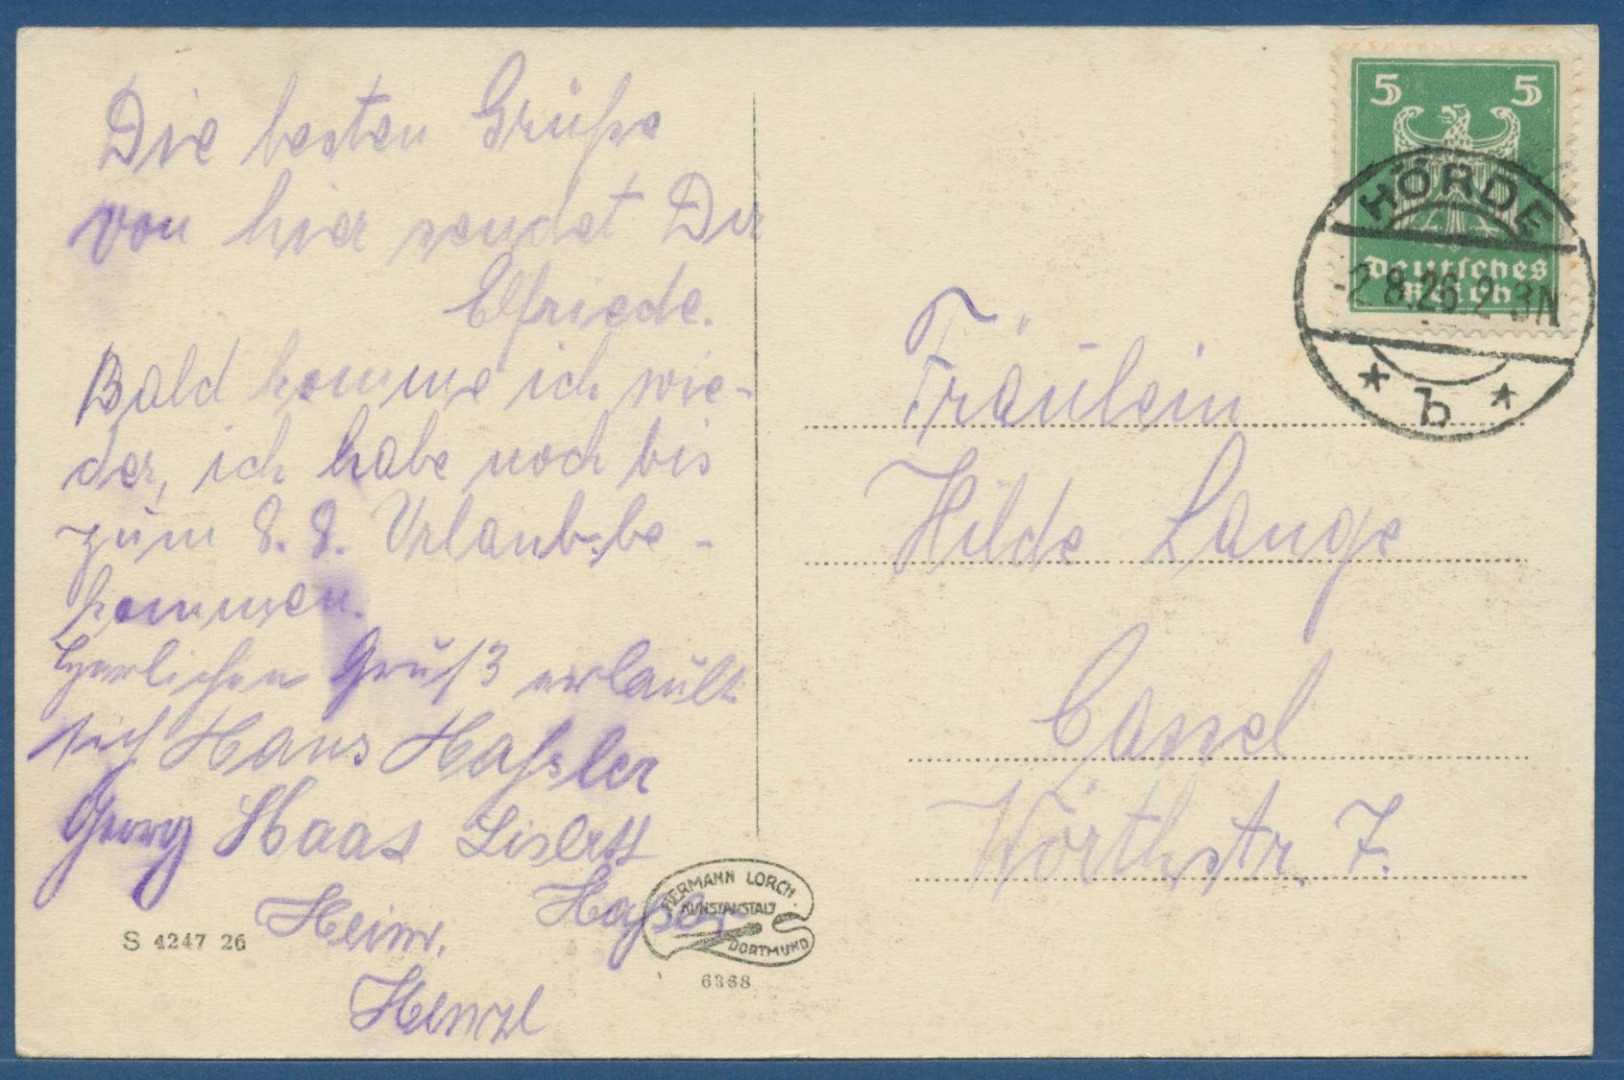 Die besten Grüße
von hier sendet Dir
Elfriede.
Bald komme ich wie-
der, ich habe noch bis
zum 8. 8. Urlaub be-
kommen.
Herzlichen Gruß erlaubt
sich Hans Haßler
Georg Haas Lislott
Heinr. Haßler
Henzl
S 4247 26
HERMANN LORCH
KUNSTANSTALT
DORTMUND
6368
5 5
Deutsches
Reich
HÖRDE
-2.8.26.2-3N
* b *
Fräulein
Hilde Lange
Cassel
Wörthstr. 7.